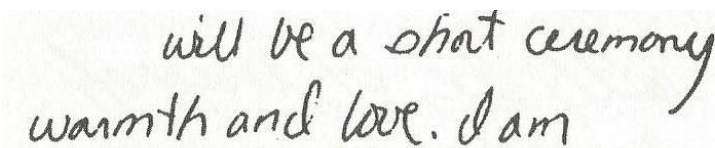 will be a short ceremony
warmth and love. I am